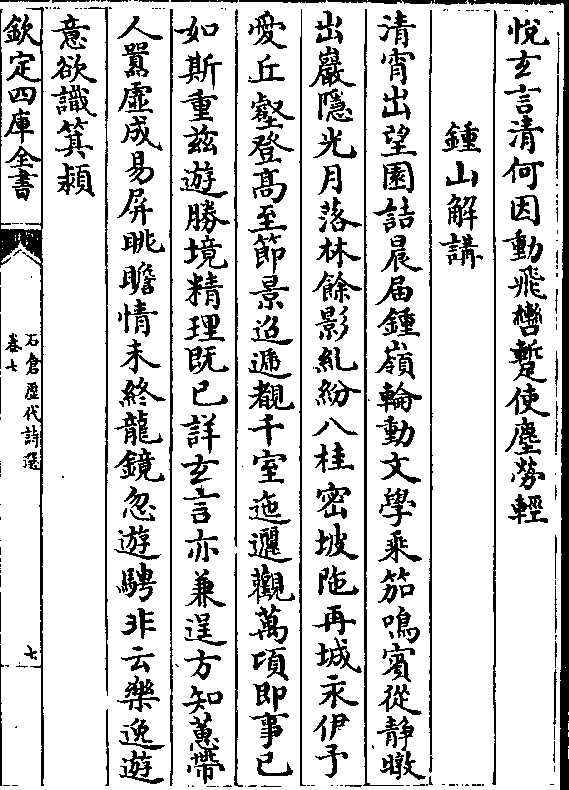 悅玄言清何因動飛轡暫使塵勞輕
鍾山解講
清宵出望園詰晨届鍾嶺輪動文學乘笳鳴賓從静暾
出巖隱光月落林餘影糺紛八桂密坡陁再城永伊予
愛丘壑登髙至節景迢遞覩千室迤邐觀萬頃即事已
如斯重兹遊勝境精理既已詳玄言亦兼逞方知蕙帶
人囂虛成易屏眺瞻情未終龍鏡忽遊騁非云樂逸遊
意欲識箕颍
欽定四庫全書
石倉歴代詩選
卷七
七